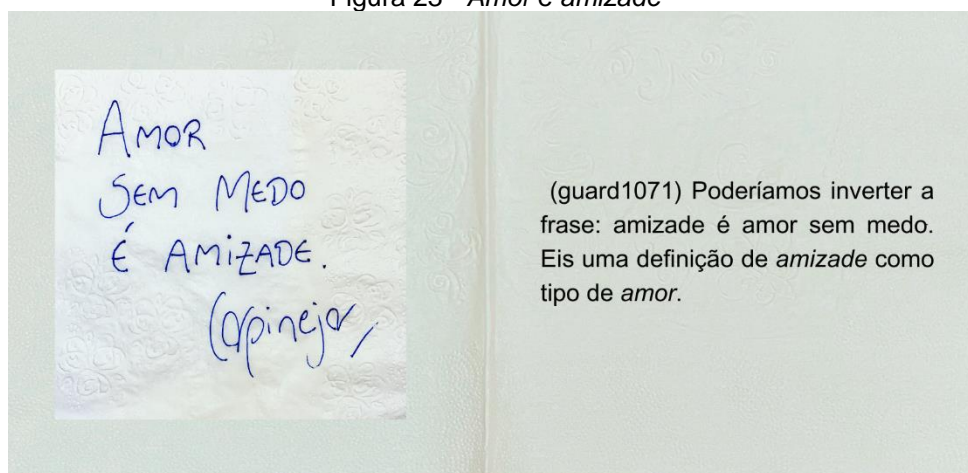 Figura 23 - Amor e amizade
AMOR
SEM MEDO
É AMIZADE.
Carpinejar
(guard1071) Poderíamos inverter a
frase: amizade é amor sem medo.
Eis uma definição de amizade como
tipo de amor.